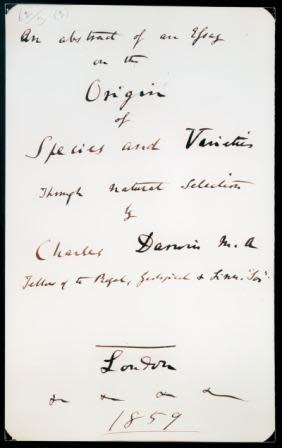 An abstract of an Essay
on the
Origin
of
Species and Varieties
Through natural Selection
by
Charles Darwin M.A
Fellow of the Royal, Geological & Linn. Socy
London
&c &c &c &c
1859